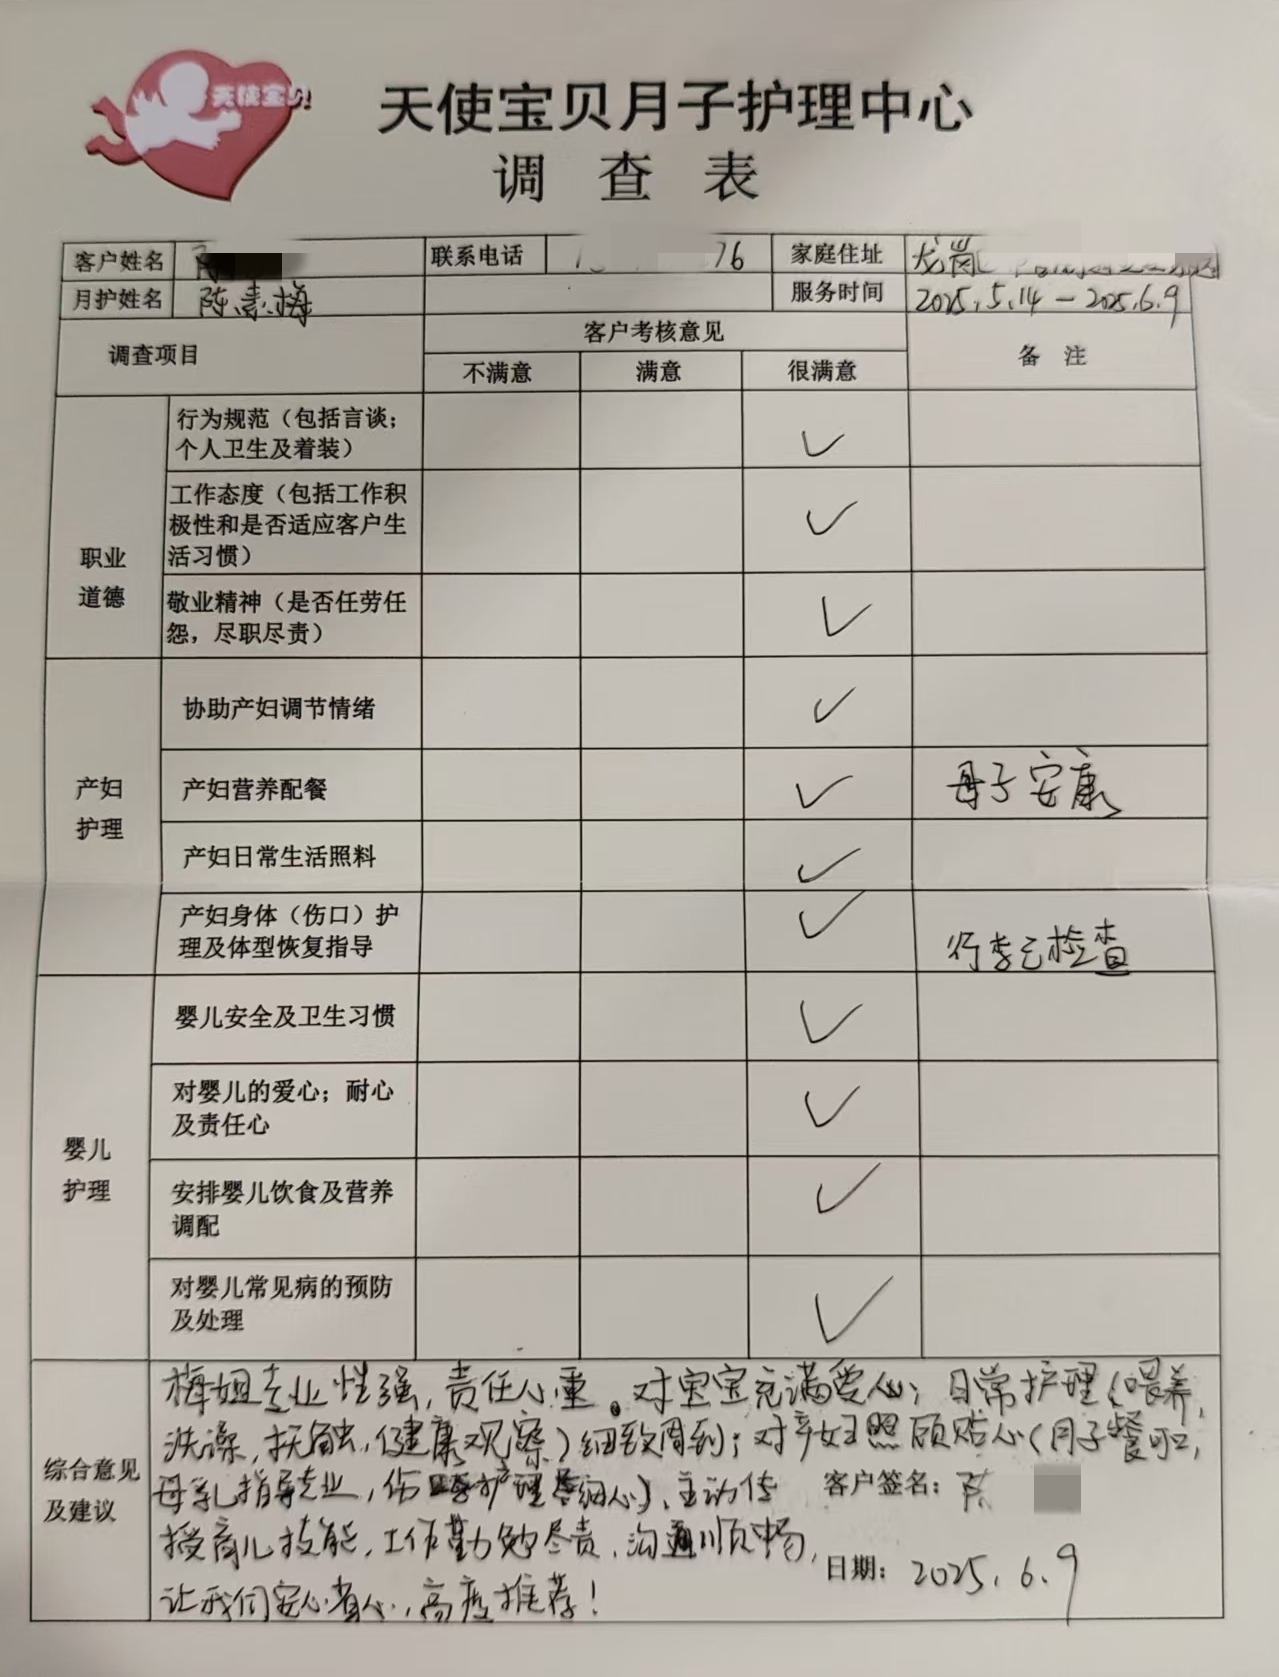 天使宝贝
天使宝贝月子护理中心
调 查 表
客户姓名 陈 联系电话 76 家庭住址 龙岗
月护姓名 陈素梅 服务时间 2025.5.14－2025.6.9
调查项目 客户考核意见 备 注
不满意 满意 很满意
职业
道德
行为规范（包括言谈；
个人卫生及着装） ✓
工作态度（包括工作积
极性和是否适应客户生
活习惯） ✓
敬业精神（是否任劳任
怨，尽职尽责） ✓
产妇
护理
协助产妇调节情绪 ✓
产妇营养配餐 ✓ 母子安康
产妇日常生活照料 ✓
产妇身体（伤口）护
理及体型恢复指导 ✓ 行李已检查
婴儿
护理
婴儿安全及卫生习惯 ✓
对婴儿的爱心；耐心
及责任心 ✓
安排婴儿饮食及营养
调配 ✓
对婴儿常见病的预防
及处理 ✓
综合意见
及建议
梅姐专业性强，责任心重。对宝宝充满爱心；日常护理（喂养，
洗澡，抚触，健康观察）细致周到；对产妇照顾贴心（月子餐可口，
母乳指导专业，伤口护理细心）、主动传
授育儿技能，工作勤勉尽责，沟通顺畅，
让我们安心省心，高度推荐！
客户签名：陈
日期：2025.6.9